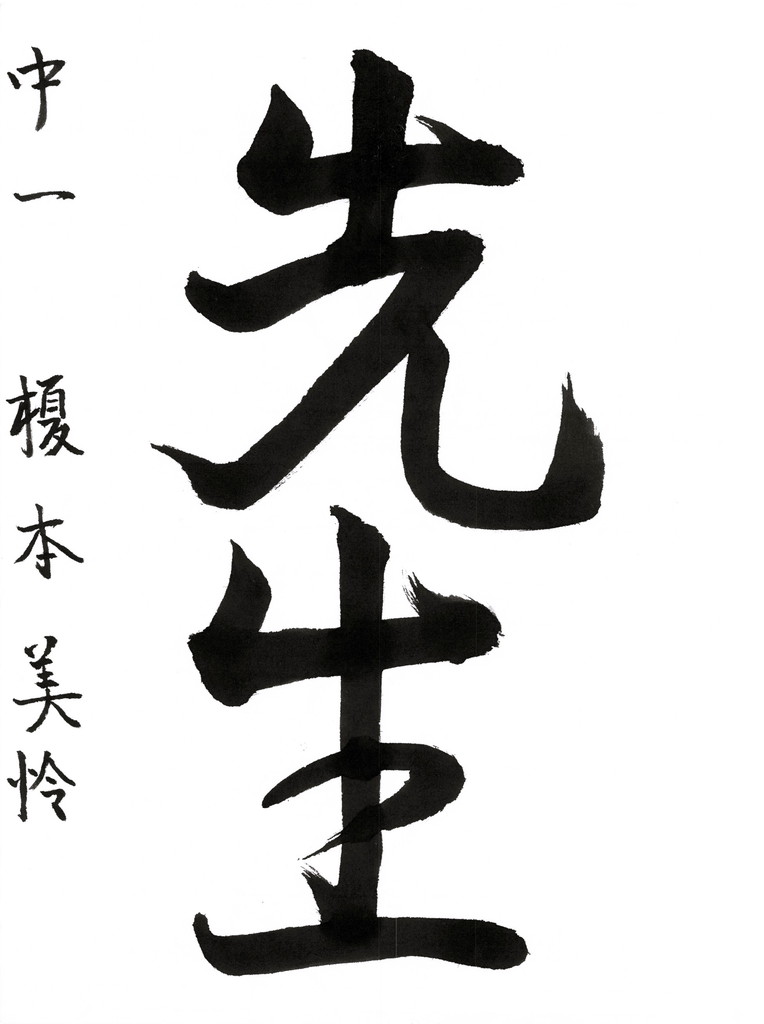 先生
中一 榎本美怜